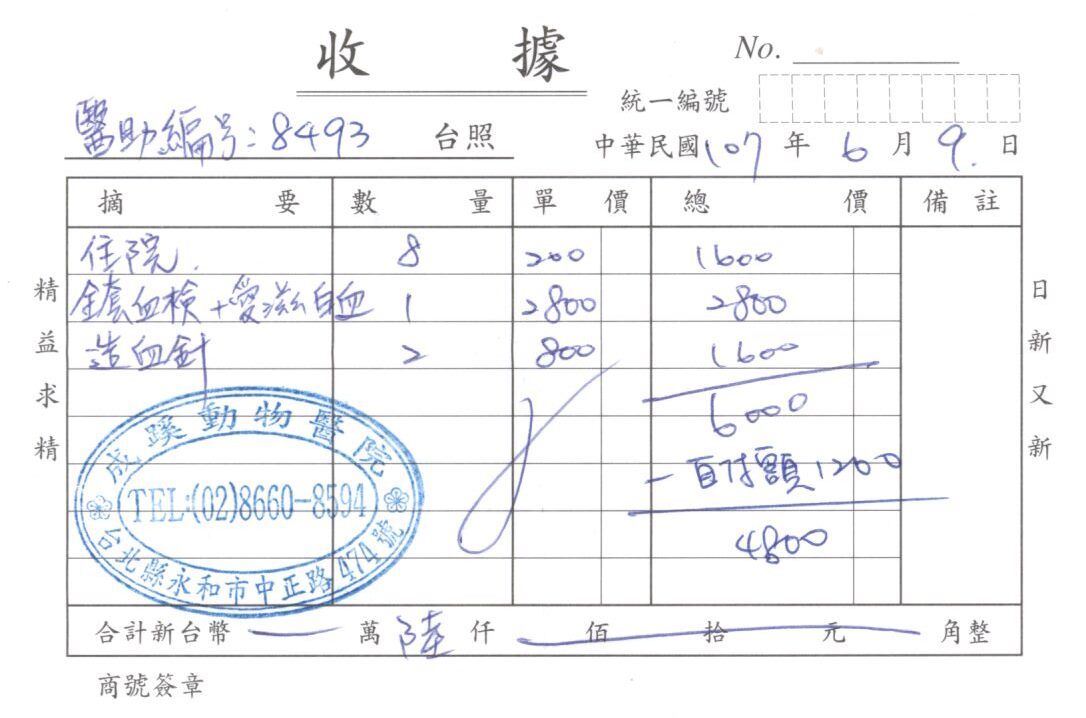 收據
No.
統一編號
醫助編號：8493 台照
中華民國107年6月9日
摘要 數量 單價 總價 備註
住院. 8 200 1600
全套血檢+愛滋白血 1 2800 2800
造血針 2 800 1600
6000
－自付額1200
4800
精益求精
日新又新
成蹊動物醫院
TEL:(02)8660-8594
台北縣永和市中正路474號
合計新台幣 萬陸仟 佰 拾 元 角整
商號簽章